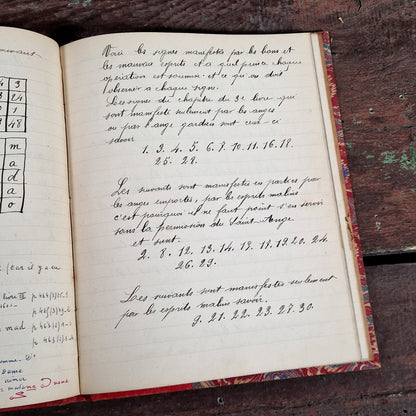 mauvais
4 3
3 24
9 48
m
a
d
a
o
livre III
mad
Dame
Voici les signes manifestés par les bons et
les mauvais esprits et a quel prince chaque
opération est soumise et ce qu'on doit
observer a chaque signe.
Les signes du chapitre du 3e livre qui
sont manifestés seulement par les anges
ou par l'ange gardien sont ceux-ci
savoir
1. 3. 4. 5. 6. 7. 10. 11. 16. 18.
25. 28.
Les suivants sont manifestés en parties par
les anges emportés, par les esprits malins
c'est pourquoi il ne faut point s'en servir
sans la permission du Saint Ange
et sont.
2. 8. 12. 13. 14. 15. 17. 19. 20. 24.
26. 29.
Les suivants sont manifestés seulement
par les esprits malins savoir.
9. 21. 22. 23. 27. 30.